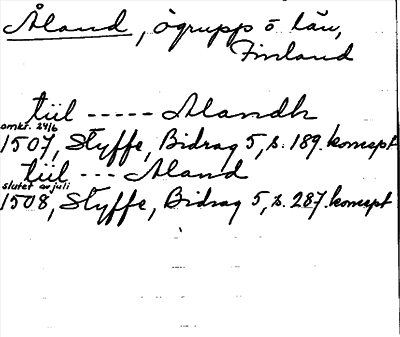 Åland, ögrupp o län,
Finland
tiil ----- Alandh
omkr. 24/6
1507, Styffe, Bidrag 5, s. 189. koncept
tiil --- Aland
slutet av juli
1508, Styffe, Bidrag 5, s. 287. koncept